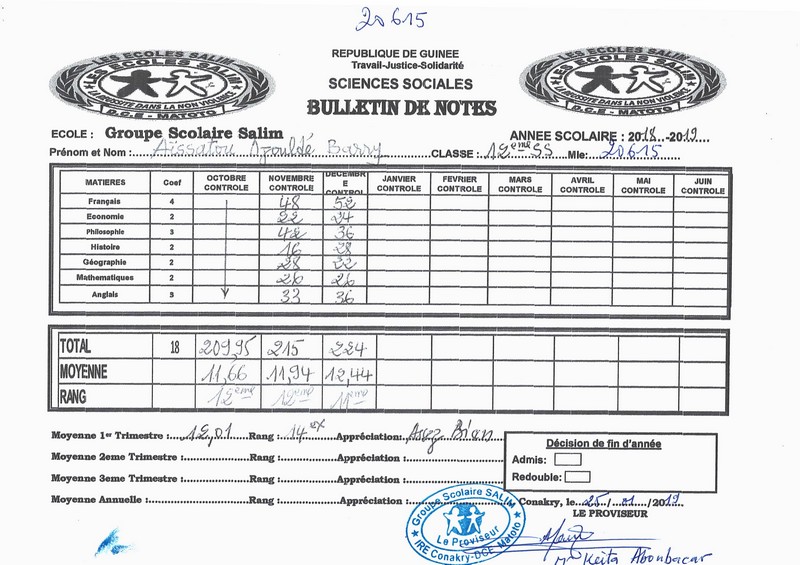 20615
LES ECOLES SALIM
LES ECOLES SALIM
LA REUSSITE DANS LA NON VIOLENCE
D.C.E - MATOTO
REPUBLIQUE DE GUINEE
Travail-Justice-Solidarité
SCIENCES SOCIALES
BULLETIN DE NOTES
LES ECOLES SALIM
LES ECOLES SALIM
LA REUSSITE DANS LA NON VIOLENCE
D.C.E - MATOTO
ECOLE : Groupe Scolaire Salim ANNEE SCOLAIRE : 2018-2019
Prénom et Nom : Aïssatou Djouldé Barry CLASSE : 12ème SS Mle: 20615
MATIERES Coef OCTOBRE CONTROLE NOVEMBRE CONTROLE DECEMBRE CONTROL JANVIER CONTROLE FEVRIER CONTROLE MARS CONTROLE AVRIL CONTROLE MAI CONTROLE JUIN CONTROLE
Français 4 48 52
Economie 2 22 24
Philosophie 3 42 36
Histoire 2 16 28
Géographie 2 28 22
Mathematiques 2 26 26
Anglais 3 33 36
TOTAL 18 209,95 215 224
MOYENNE 11,66 11,94 12,44
RANG 12ème 12ème 11ème
Moyenne 1er Trimestre : 12,01 Rang : 14ex Appréciation: Assez Bien
Moyenne 2eme Trimestre : Rang : Appréciation :
Moyenne 3eme Trimestre : Rang : Appréciation :
Moyenne Annuelle : Rang : Appréciation :
Décision de fin d'année
Admis:
Redouble:
Conakry, le 25/01/2019
LE PROVISEUR
Groupe Scolaire SALIM
Le Proviseur
IRE Conakry-DCE Matoto
Mr Keita Aboubacar